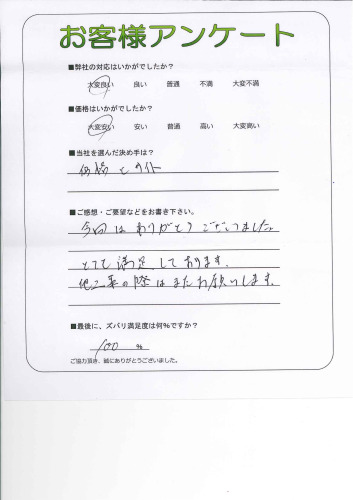 お客様アンケート
■弊社の対応はいかがでしたか？
大変良い 良い 普通 不満 大変不満
■価格はいかがでしたか？
大変安い 安い 普通 高い 大変高い
■当社を選んだ決め手は？
価格とサイト
■ご感想・ご要望などをお書き下さい。
今回はありがとうございました。
とても満足しております。
他工事の際はまたお願いします。
■最後に、ズバリ満足度は何％ですか？
100 %
ご協力頂き、誠にありがとうございました。